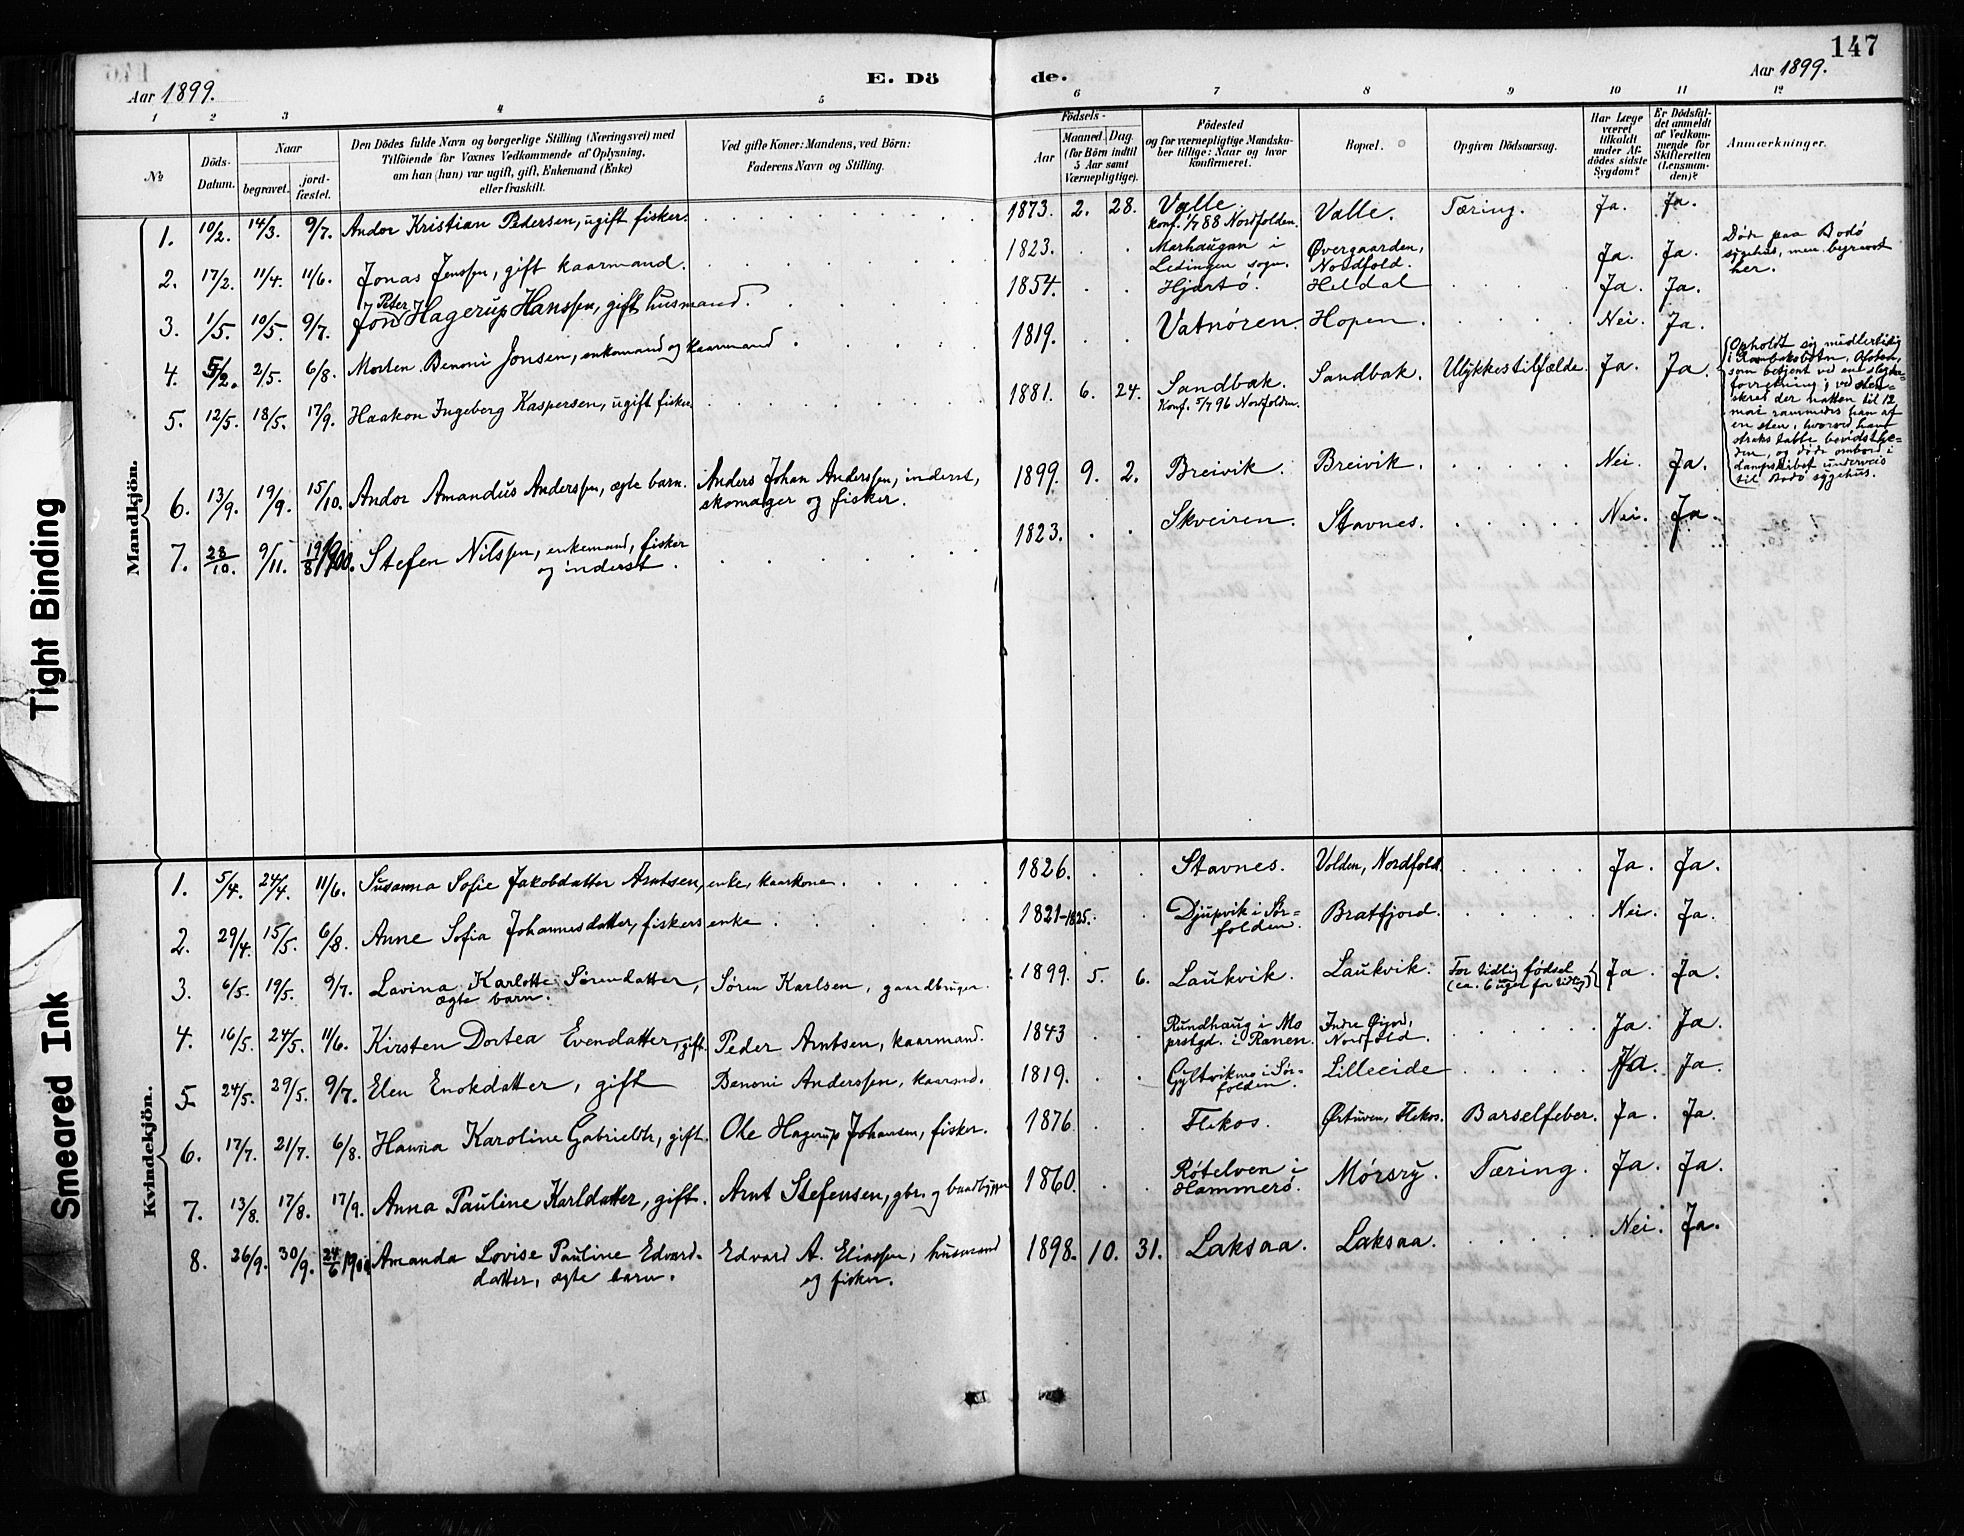 147
Aar 1899.
E. Dö
de.
Aar 1899.
1 2 3 4 5 6 7 8 9 10 11 12
№
Döds-Datum.
Naar
begravet.
jordfæstet.
Den Dödes fulde Navn og borgerlige Stilling (Næringsvei) med
Tilföiende for Voxnes Vedkommende af Oplysning,
om han (hun) var ugift, gift, Enkemand (Enke)
eller fraskilt.
Ved gifte Koner: Mandens, ved Börn:
Faderens Navn og Stilling.
Födsels-
Aar
Maaned.
Dag.
(for Börn indtil
5 Aar samt
Værnepligtige).
Födested
og for værnepligtige Mandskaber tillige: Naar og hvor
konfirmeret.
Bopæl.
Opgiven Dödsaarsag.
Har Læge
været
tilkaldt
under Afdödes sidste
Sygdom?
Er Dödsfaldet anmeldt
af Vedkommende for
Skifteretten
(Lensmanden)?
Anmærkninger.
Mandkjön.
1. 10/2. 14/3. 9/7. Andor Kristian Pedersen, ugift fisker. 1873. 2. 28. Valle. Konf. 1/7 88 Nordfolden. Valle. Tæring. Ja. Ja.
2. 17/2. 11/4. 11/6. Jonas Jenssen, gift kaarmand. 1823. Marhaugan i Lødingen sogn. Øvergaarden, Nordfold. Ja. Ja. Døde paa Bodø sygehus, men begravet her.
3. 1/5. 10/5. 9/7. Jon Peter Hagerup Hanssen, gift husmand. 1854. Hjartø. Heldal Ja. Ja.
4. 5/2. 2/5. 6/8. Morten Benoni Jonsen, enkemand og kaarmand. 1819. Vatnøren. Hopen. Nei. Ja.
5. 12/5. 18/5. 17/9. Haakon Ingeberg Kaspersen, ugift fisker. 1881. 6. 24. Sandbak. Konf. 5/7 96 Nordfolden. Sandbak. Ulykkestilfælde. Ja. Ja.
Opholdt sig midlertidig
i Rombaksbotn, Ofoten,
som betjent ved en
forretning; ved
skred der natten til 12
mai rammedes han af
en sten, hvorved han
straks tabte bevidsthe-
den, og døde ombord i
dampskibet underveis
til Bodø sygehus.
6. 13/9. 19/9. 15/10. Andor Amandus Anderssen, ægte barn. Anders Johan Anderssen, inderst, skomager og fisker. 1899. 9. 2. Breivik. Breivik. Nei. Ja.
7. 28/10. 9/11. 19/8 1900. Stefen Nilssen, enkemand, fisker og inderst. 1823. Skveiren. Stavnes. Nei. Ja.
Kvindekjön.
1. 5/4. 24/4. 11/6. Susanna Sofie Jakobdatter Arntsen, enke, kaarkone. 1826. Stavnes. Volden, Nordfold. Ja. Ja.
2. 29/4. 15/5. 6/8. Anne Sofia Johannesdatter, fiskers enke 1821-1825. Djupvik i Sørfolden. Bratfjord. Nei. Ja.
3. 6/5. 19/5. 9/7. Lavina Karlotte Sørendatter, ægte barn. Søren Karlsen, gaardbruger. 1899. 5. 6. Laukvik. Laukvik. For tidlig fødsel (ca. 6 uger for tidlig) Ja. Ja.
4. 16/5. 24/5. 11/6. Kirsten Dortea Evendatter, gift. Peder Arntsen, kaarmand. 1843 Rundhaug i Mo prstgd. i Ranen. Indre Øijord, Nordfold. Ja. Ja.
5. 24/5. 29/5. 9/7. Elen Enokdatter, gift Benoni Anderssen, kaarmd. 1819. Gyltvikmo i Sørfolden. Lilleeide Ja. Ja.
6. 17/7. 21/7. 6/8. Hanna Karoline Gabrieldtr, gift. Ole Hagerup Johansen, fisker. 1876. Flekos. Ørtuven, Flekos. Barselfeber. Ja. Ja.
7. 13/8. 17/8. 17/9. Anna Pauline Karldatter, gift. Arnt Stefensen, gbr. og baadbygger 1860. Røtelven i Hammerø. Mørsry. Tæring. Ja. Ja.
8. 26/9. 30/9. 24/6 1900. Amanda Lovise Pauline Edvarddatter, ægte barn. Edvard A. Eliassen, husmand og fisker. 1898. 10. 31. Laksaa. Laksaa. Nei. Ja.
Tight Binding
Smeared Ink